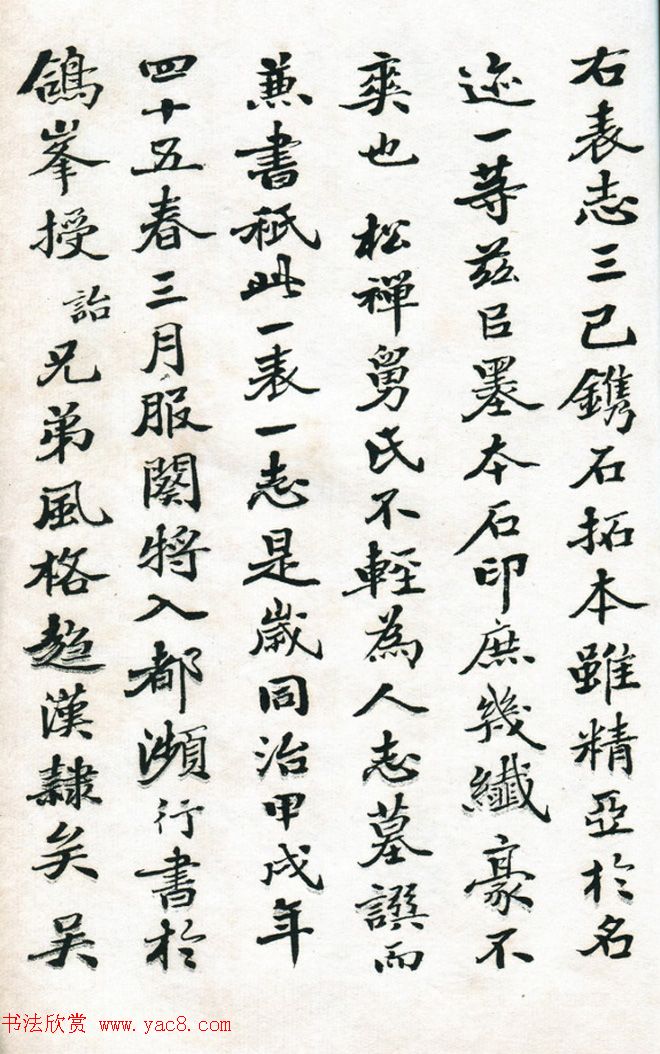 右表志三已鐫石拓本雖精亞於名
迹一等茲臣墨本石印庶幾纖豪不
爽也 松禪舅氏不輕為人志墓譔而
蒹書秖此一表一志是歲同治甲戌年
四十五春三月服闋將入都瀕行書於
鴿峯授詒兄弟風格趍漢隸矣吴
书法欣赏 www.yac8.com